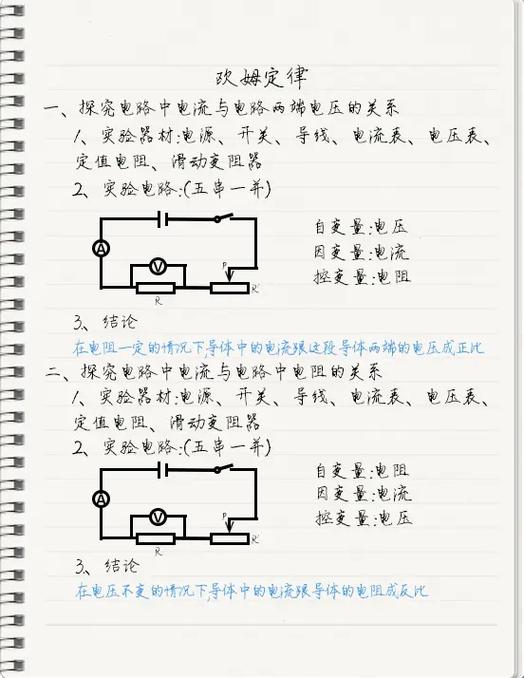 欧姆定律
一、探究电路中电流与电路两端电压的关系
1、实验器材:电源、开关、导线、电流表、电压表、
定值电阻、滑动变阻器
2、实验电路:(五串一并)
A
V
P
R
R'
自变量:电压
因变量:电流
控变量:电阻
3、结论
在电阻一定的情况下,导体中的电流跟这段导体两端的电压成正比
二、探究电路中电流与电路中电阻的关系
1、实验器材:电源、开关、导线、电流表、电压表、
定值电阻、滑动变阻器
2、实验电路:(五串一并)
A
V
P
R
R'
自变量:电阻
因变量:电流
控变量:电压
3、结论
在电压不变的情况下,导体中的电流跟导体的电阻成反比